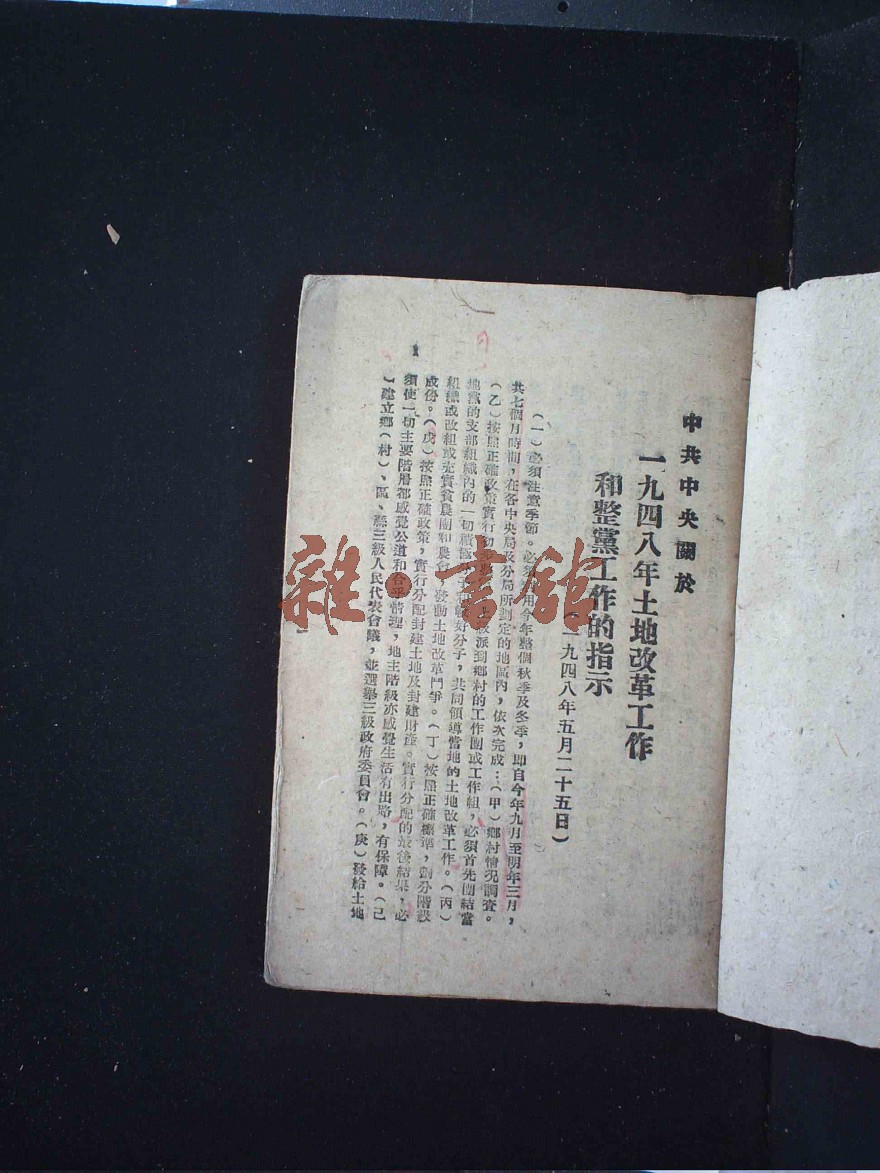 中共中央關於
一九四八年土地改革工作
和整黨工作的指示
(一九四八年五月二十五日)
(一)必須注意季節。必須利用今年整個秋季及冬季,即自今年九月至明年三月,
共七個月時間,在各中央局及分局所劃定的地區內,依次完成:(甲)鄉村情況調查。
(乙)按照正確政策實行初步整黨。上級派到鄉村的工作團或工作組,必須首先團結當
地黨的支部組織內的一切積極分子和較好分子,共同領導當地的土地改革工作。(丙)
組織或改組或充實貧農團和農會,發動土地改革鬥爭。(丁)按照正確標準,劃分階級
成份。(戊)按照正確政策,實行分配封建土地及封建財產。實行分配的最後結果,必
須使一切主要階層都感覺公道和合乎情理,地主階級亦感覺生活有出路,有保障。(己
)建立鄉(村)、區、縣三級人民代表會議,並選舉三級政府委員會。(庚)發給土地
1
雜·書館